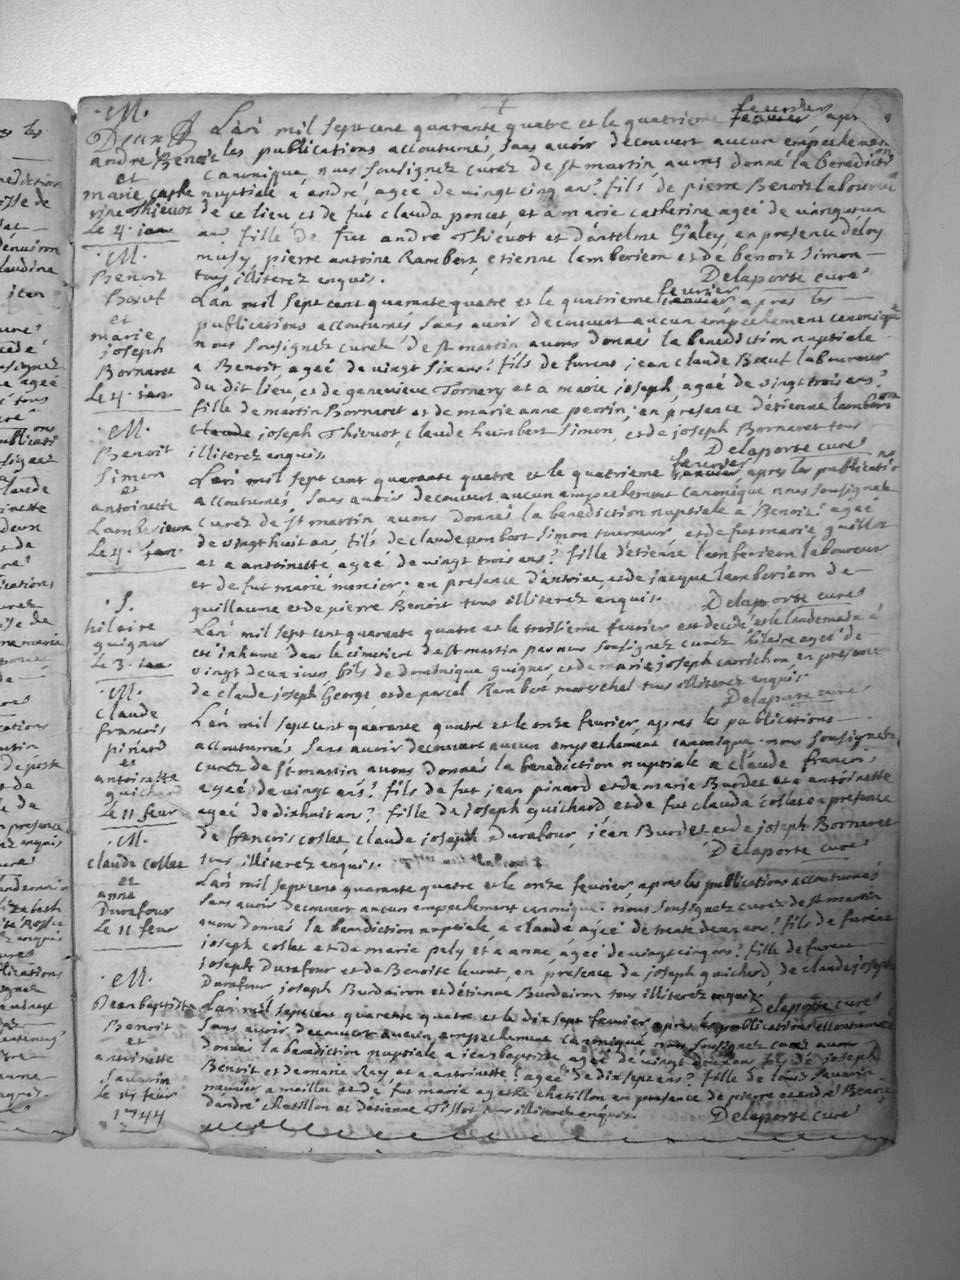 .M.
andre Benoit
et
marie cathe
rine Thievot
Le 4. ian
L'an mil sept cent quarante quatre et le quatrieme fevrier apr
les publications accoutumés, sans avoir découvert aucun empechement
canonique, nous soussignez curez de st martin avons donné la benedicti
nuptiale a andré ageé de vingt cinq ans? fils de pierre Benoit laboureur
de ce lieu et de fut clauda poncet, et a marie catherine ageé de vingt et un
an fille de fut andré Thiévot et d'antelme Galey, en presence d'éloy
musy, pierre antoine Rambert, etienne lamberieon et de benoit simon
tous illiterez enquis. Delaporte curé
.M.
Benoit
Bœuf
et
marie
joseph
Bornaret
Le 4. ian
L'an mil sept cent quarante quatre et le quatrieme fevrier apres les
publications accoutumés sans avoir decouvert aucun empechement canonique
nous soussignez curez de st martin avons donnés la benediction nuptiale
a Benoit ageé de vingt six ans? fils de furent jean claude Bœuf laboureur
du dit lieu et de genevieve Tornery et a marie joseph, ageé de vingt trois ans?
fille de martin Bornaret et de marie anne perrin, en presence d'étienne lamberi
joseph Thievot, claude humbert simon, et de joseph Bornaret tous
illiterez enquis. Delaporte curé
.M.
Benoit
Simon
et
antoinette
Lamberieon
Le 4. ian
L'an mil sept cent quarante quatre et le quatrieme fevrier apres les publicatio
accoutumés, sans avoir decouvert aucun empechement canonique nous soussignez
curez de st martin avons donnés la benediction nuptiale a Benoit ageé
de vingt huit ans, fils de claude humbert simon tourneur et de fut marie guillot
et a antoinette ageé de vingt trois ans? fille d'etienne lamberieon laboureur
et de fut marie mercier, en presence d'antoine, et de jacque lamberieon de
guillaume et de pierre Benoit tous illiterez enquis. Delaporte curé
.S.
hilaire
guignar
Le 3. ian
L'an mil sept cent quarante quatre et le troisieme fevrier est decedé et le landemain à
eté inhumé dans le cimetiere de st martin par nous soussignez curez hilaire ageé de
vingt deux ans, fils de dominique guignar et de marie joseph carrichon, en presence
de claude joseph George, et de pascal Rambert mareschal tous illiterez enquis
Delaporte curé
.M.
claude
francois
pinard
et
antoinette
guichard
Le 11 feur
L'an mil sept cent quarante quatre et le onze fevrier, apres les publications
accoutumés sans avoir decouvert aucun empechement canonique nous soussignez
curez de st martin avons donnés la benediction nuptiale a claude francois
ageé de vingt ans? fils de fut jean pinard et de marie Burdet et a antoinette
ageé de dixhuit an? fille de joseph guichard et de fut clauda collet en presence
de francois collet, claude joseph Durafour, jean Burdet et de joseph Bornaret
tous illiterez enquis. Delaporte curé
.M.
claude collet
et
anne
Durafour
Le 11 feur
L'an mil sept cent quarante quatre et le onze fevrier apres les publications accoutumés
sans avoir decouvert aucun empechement canonique, nous soussignez curez de st martin
avons donnés la benediction nuptiale a claude ageé de trente deux an, fils de furent
joseph collet et de marie paly et a anne, ageé de vingt cinq ans? fille de furent
joseph Durafour et de Benoite leurat, en presence de joseph guichard, de claude joseph
Durafour, joseph Burdairon et d'étienne Burdairon tous illiterez enquis. Delaporte curé
.M.
Jean baptiste
Benoit
et
antoinette
Savarin
Le 17 feur
1744
L'an mil sept cent quarante quatre et le dix sept fevrier apres les publications accoutumé
sans avoir decouvert aucun empechement canonique nous soussignez curez avons
donnés la benediction nuptiale a jean baptiste ageé de vingt fils de joseph
Benoit et de marie Ray, et a antoinette ageé de dix sept ans? fille de louis savarin
meunier a maillat et de fut marie agathe chatillon en presence de pierre et andré Benoit
d'andré chatillon et d'etienne Tillot tous illiterez enquis. Delaporte curé